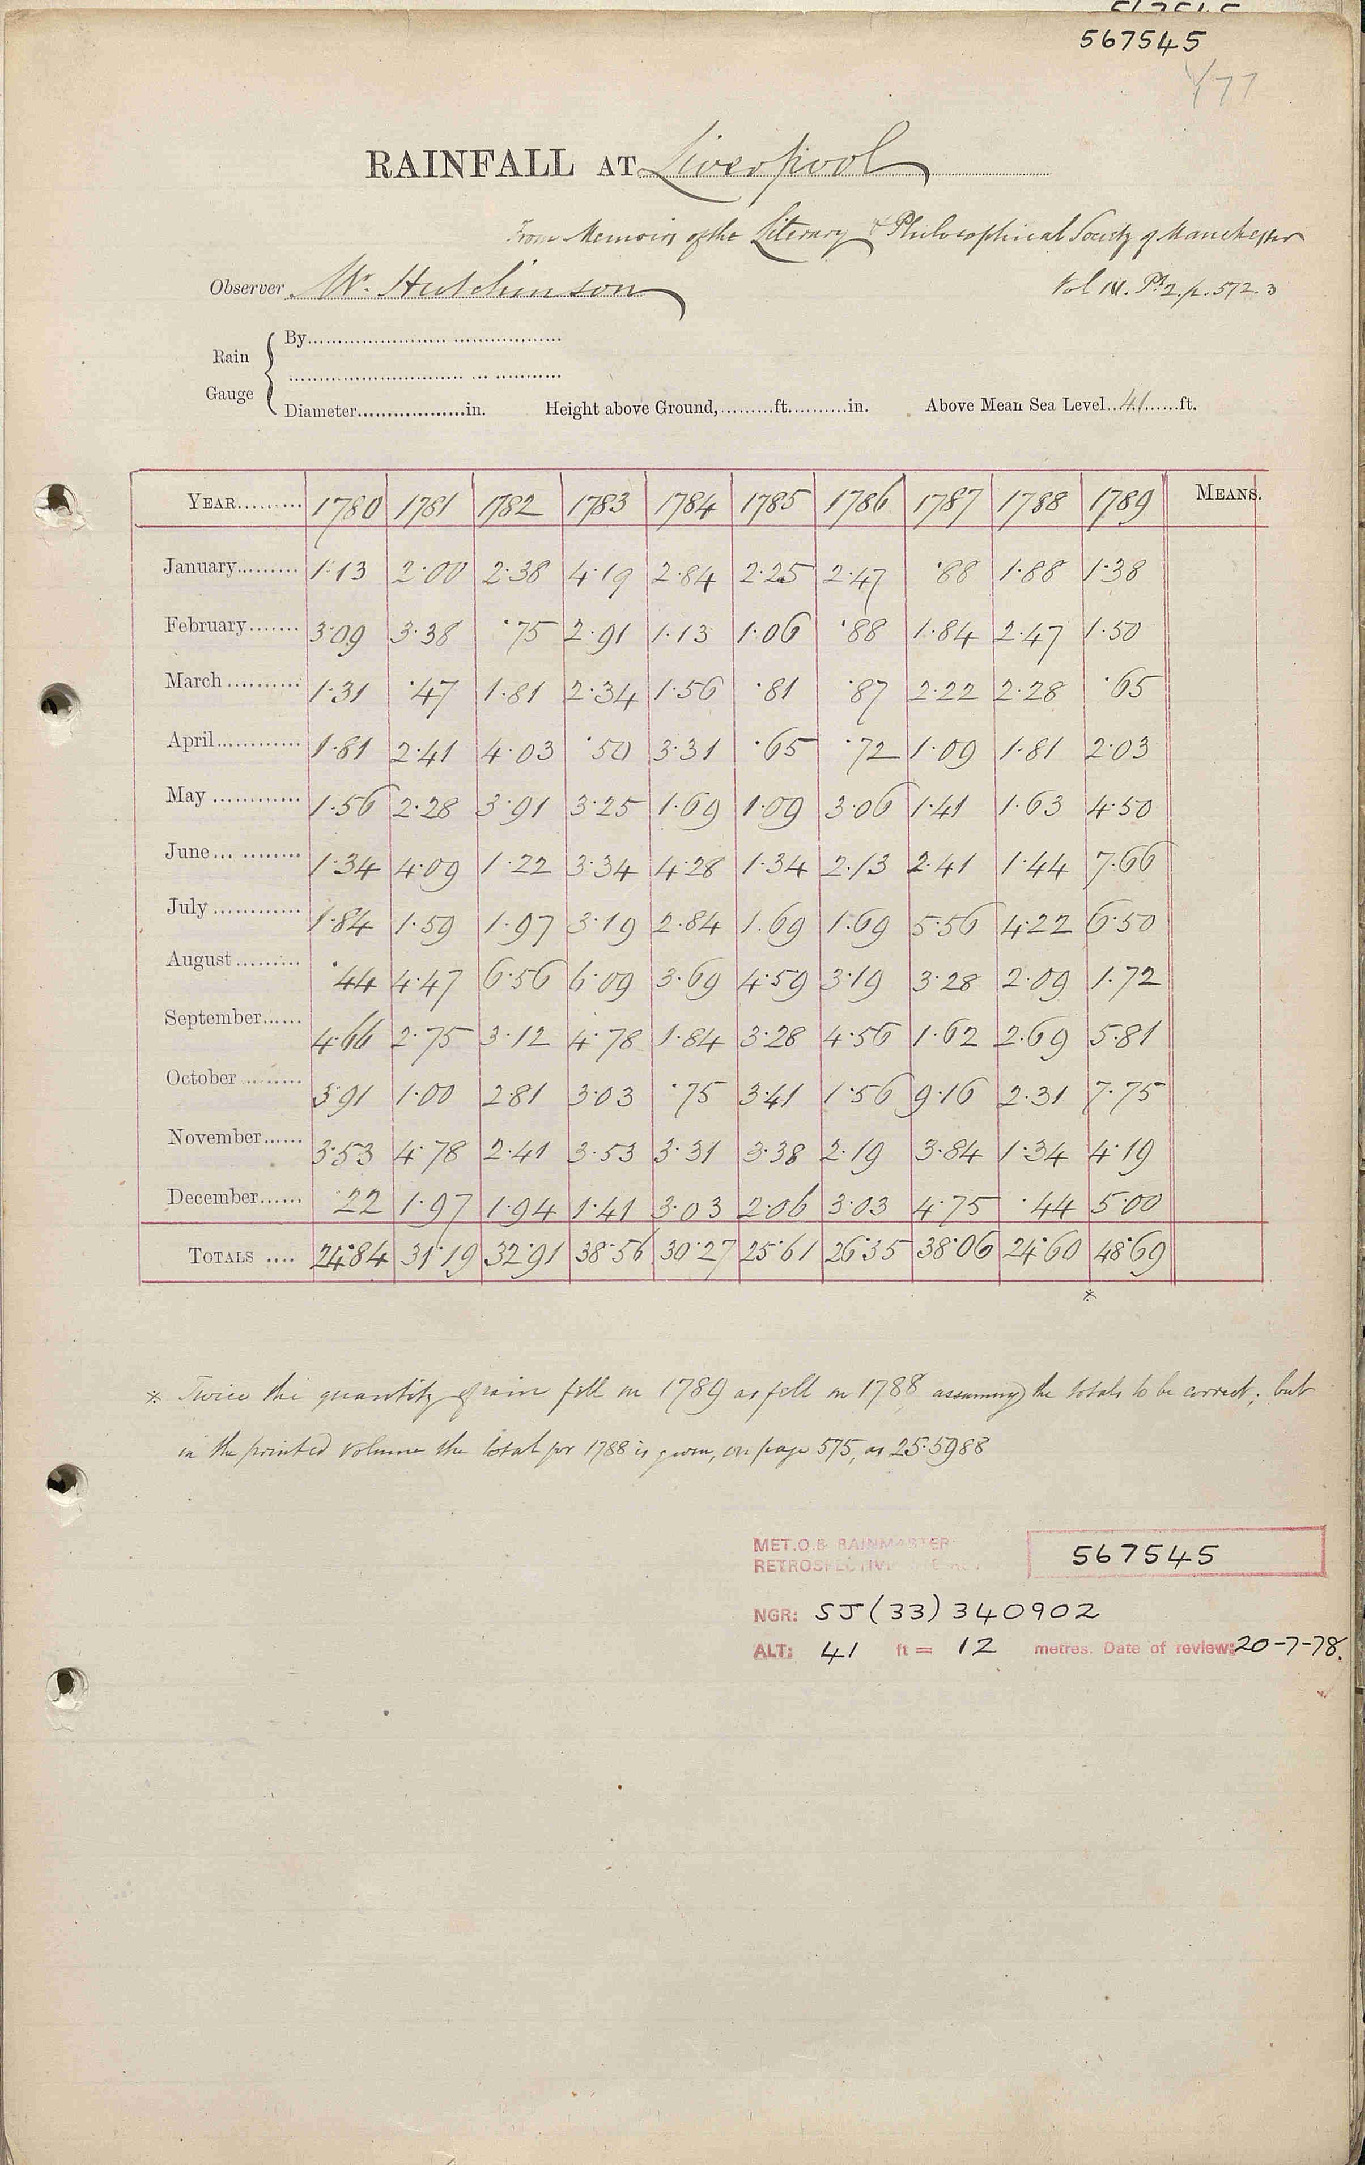 567545
177
RAINFALL AT Liverpool
From Memoirs of the Literary & Philosophical Society of Manchester
Observer W. Hutchinson Vol IV. Pt 2. p. 572.3
Rain Gauge { By
Diameter in. Height above Ground, ft. in. Above Mean Sea Level 41 ft.
YEAR 1780 1781 1782 1783 1784 1785 1786 1787 1788 1789 MEANS.
January 1.13 2.00 2.38 4.19 2.84 2.25 2.47 .88 1.88 1.38
February 3.09 3.38 .75 2.91 1.13 1.06 .88 1.84 2.47 1.50
March 1.31 .47 1.81 2.34 1.56 .81 .87 2.22 2.28 .65
April 1.81 2.41 4.03 .50 3.31 .65 .72 1.09 1.81 2.03
May 1.56 2.28 3.91 3.25 1.69 1.09 3.06 1.41 1.63 4.50
June 1.34 4.09 1.22 3.34 4.28 1.34 2.13 2.41 1.44 7.66
July 1.84 1.59 1.97 3.19 2.84 1.69 1.69 5.56 4.22 6.50
August .44 4.47 6.56 6.09 3.69 4.59 3.19 3.28 2.09 1.72
September 4.66 2.75 3.12 4.78 1.84 3.28 4.56 1.62 2.69 5.81
October 3.91 1.00 2.81 3.03 .75 3.41 1.56 9.16 2.31 7.75
November 3.53 4.78 2.41 3.53 3.31 3.38 2.19 3.84 1.34 4.19
December .22 1.97 1.94 1.41 3.03 2.06 3.03 4.75 .44 5.00
TOTALS 24.84 31.19 32.91 38.56 30.27 25.61 26.35 38.06 24.60 48.69
*
* Twice the quantity of rain fell in 1789 as fell in 1788, assuming the totals to be correct; but
in the printed volume the total for 1788 is given, on page 575, as 25.5988
MET.O.8 RAINMASTER
RETROSPECTIVE 567545
NGR: SJ (33) 340902
ALT: 41 ft = 12 metres. Date of review: 20-7-78.